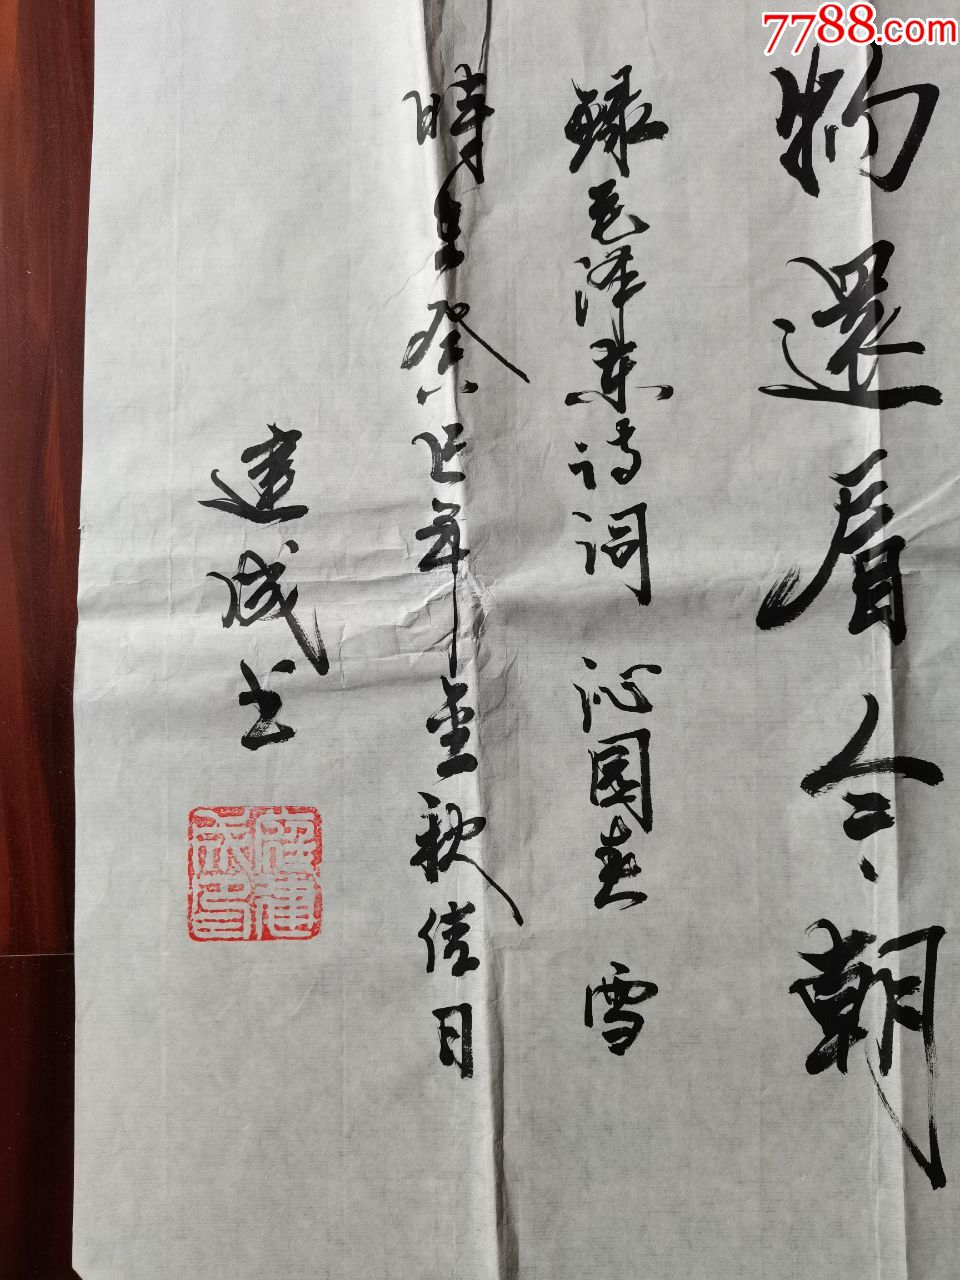 7788.com
物還看今朝
錄毛泽东诗词 沁园春 雪
時在癸巳年金秋佳日
建成书